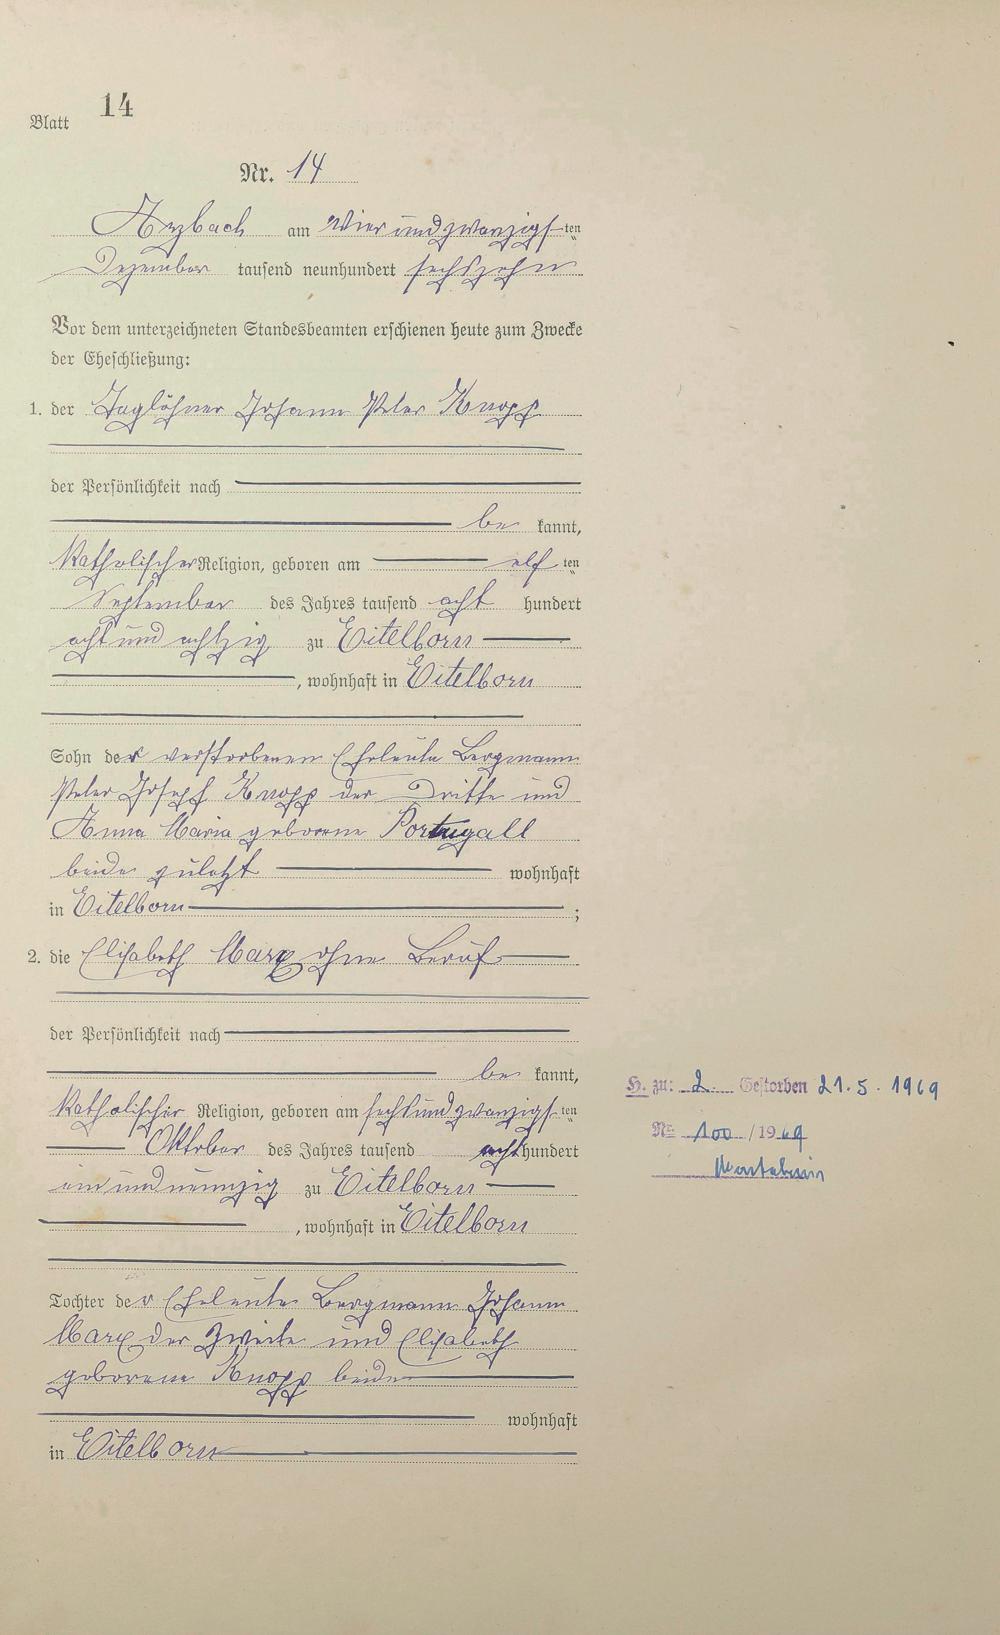 Blatt 14
Nr. 14
Arzbach am Vier und zwanzigsten
Dezember tausend neunhundert sechszehn
Vor dem unterzeichneten Standesbeamten erschienen heute zum Zwecke
der Eheschließung:
1. der Taglöhner Johann Peter Knopp
der Persönlichkeit nach
be kannt,
katholischer Religion, geboren am elf ten
September des Jahres tausend acht hundert
acht und achtzig zu Eitelborn
, wohnhaft in Eitelborn
Sohn der verstorbenen Eheleute Bergmann
Peter Joseph Knopp der Dritte und
Anna Maria geborene Portugall
beide zuletzt wohnhaft
in Eitelborn ;
2. die Elisabeth Marx ohne Beruf
der Persönlichkeit nach
be kannt,
katholischer Religion, geboren am sechsundzwanzigsten
Oktober des Jahres tausend acht hundert
ein und neunzig zu Eitelborn
, wohnhaft in Eitelborn
Tochter der Eheleute Bergmann Johann
Marx der Zweite und Elisabeth
geborene Knopp beide
wohnhaft
in Eitelborn
H. zu: 2. Gestorben 21.5.1969
Nr. 100 /1969